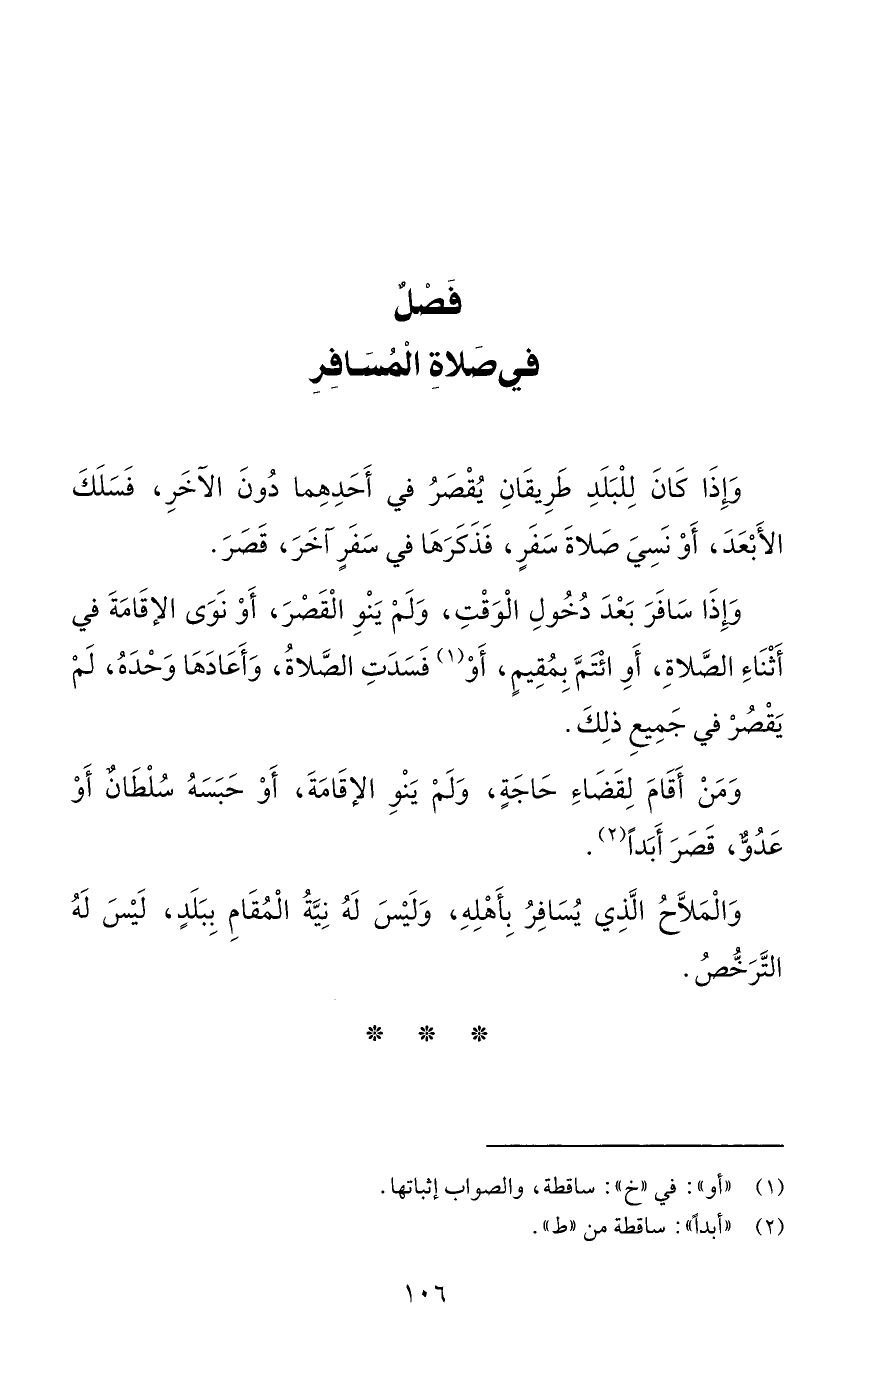 فَصْلٌ
في صَلاةِ الْمُسَافِرِ
وَإِذَا كَانَ لِلْبَلَدِ طَرِيقَانِ يُقْصَرُ في أَحَدِهِما دُونَ الآخَرِ، فَسَلَكَ
الأَبْعَدَ، أَوْ نَسِيَ صَلاةَ سَفَرٍ، فَذَكَرَهَا في سَفَرٍ آخَرَ، قَصَرَ.
وَإِذَا سَافَرَ بَعْدَ دُخُولِ الْوَقْتِ، وَلَمْ يَنْوِ الْقَصْرَ، أَوْ نَوَى الإقَامَةَ في
أَثْنَاءِ الصَّلاةِ، أَوِ ائْتَمَّ بِمُقِيمٍ، أَوْ(١) فَسَدَتِ الصَّلاةُ، وَأَعَادَهَا وَحْدَهُ، لَمْ
يَقْصُرْ في جَمِيعِ ذلِكَ.
وَمَنْ أَقَامَ لِقَضَاءِ حَاجَةٍ، وَلَمْ يَنْوِ الإقَامَةَ، أَوْ حَبَسَهُ سُلْطَانٌ أَوْ
عَدُوٌّ، قَصَرَ أَبَداً(٢).
وَالْمَلاَّحُ الَّذِي يُسَافِرُ بِأَهْلِهِ، وَلَيْسَ لَهُ نِيَّةُ الْمُقَامِ بِبَلَدٍ، لَيْسَ لَهُ
التَّرَخُّصُ.
* * *
(١) «أو»: في «خ»: ساقطة، والصواب إثباتها.
(٢) «أبداً»: ساقطة من «ط».
١٠٦